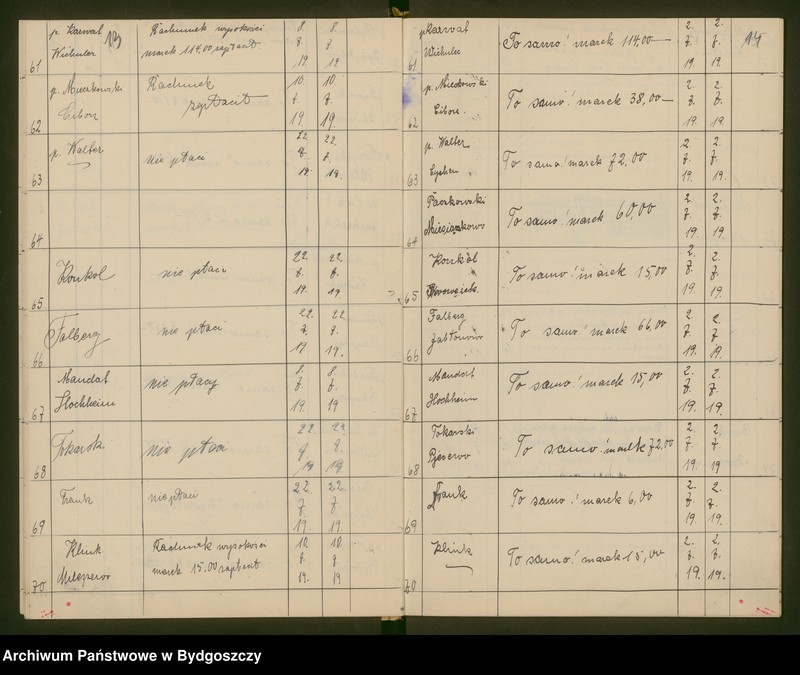 13
61
p. Karwat
Wichulec
Rachunek wysokości
marek 114.00 zapłacił
8. 8.
8. 7.
19 19
62
p. Mieczkowski
Cibor
Rachunek
zapłacił
10 10
7. 7.
19 19.
63
p. Walter
nie płaci
22 22.
8. 7.
19. 19.
64
65
Konkol
nie płaci
22. 22.
8. 8.
19. 19
66
Falberg
nie płaci
22. 22
7. 7.
19 19.
67
Mandat
Hochheim
nie płacą
8. 8.
7. 7.
19. 19
68
Tokarski
nie płaci
22. 22
8. 8.
19 19
69
Frank
nie płaci
22. 22.
7. 7
19. 19.
70
Klink
Mileszewo
Rachunek wysokości
marek 15.00 zapłacił
10. 10.
8. 8
19. 19
14
61
p Karwat
Wichulec
To samo! marek 114.00—
2. 2.
7. 7.
19. 19.
62
p. Mieczkowski
Cibor.
To samo! marek 38,00—
2. 2.
7. 7.
19. 19
63
p. Walter
To samo! marek 72.00
2. 2.
7. 7.
19. 19.
64
Paczkowski
To samo! marek 60,00
2. 2.
7. 7.
19. 19.
65
Konkol
To samo! marek 15,00
2. 2.
7. 7.
19. 19.
66
Falberg
To samo! marek 66,00
2. 2.
7. 7.
19. 19.
67
Mandat
Hochheim
To samo! marek 15,00
2. 2.
7. 7.
19. 19.
68
Tokarski
To samo! marek 72,00
2. 2.
7. 7.
19. 19
69
Frank
To samo! marek 6,00
2. 2
7. 7.
19. 19.
70
Klink
To samo! marek 15,00
2. 2.
7. 7.
19. 19.
Archiwum Państwowe w Bydgoszczy